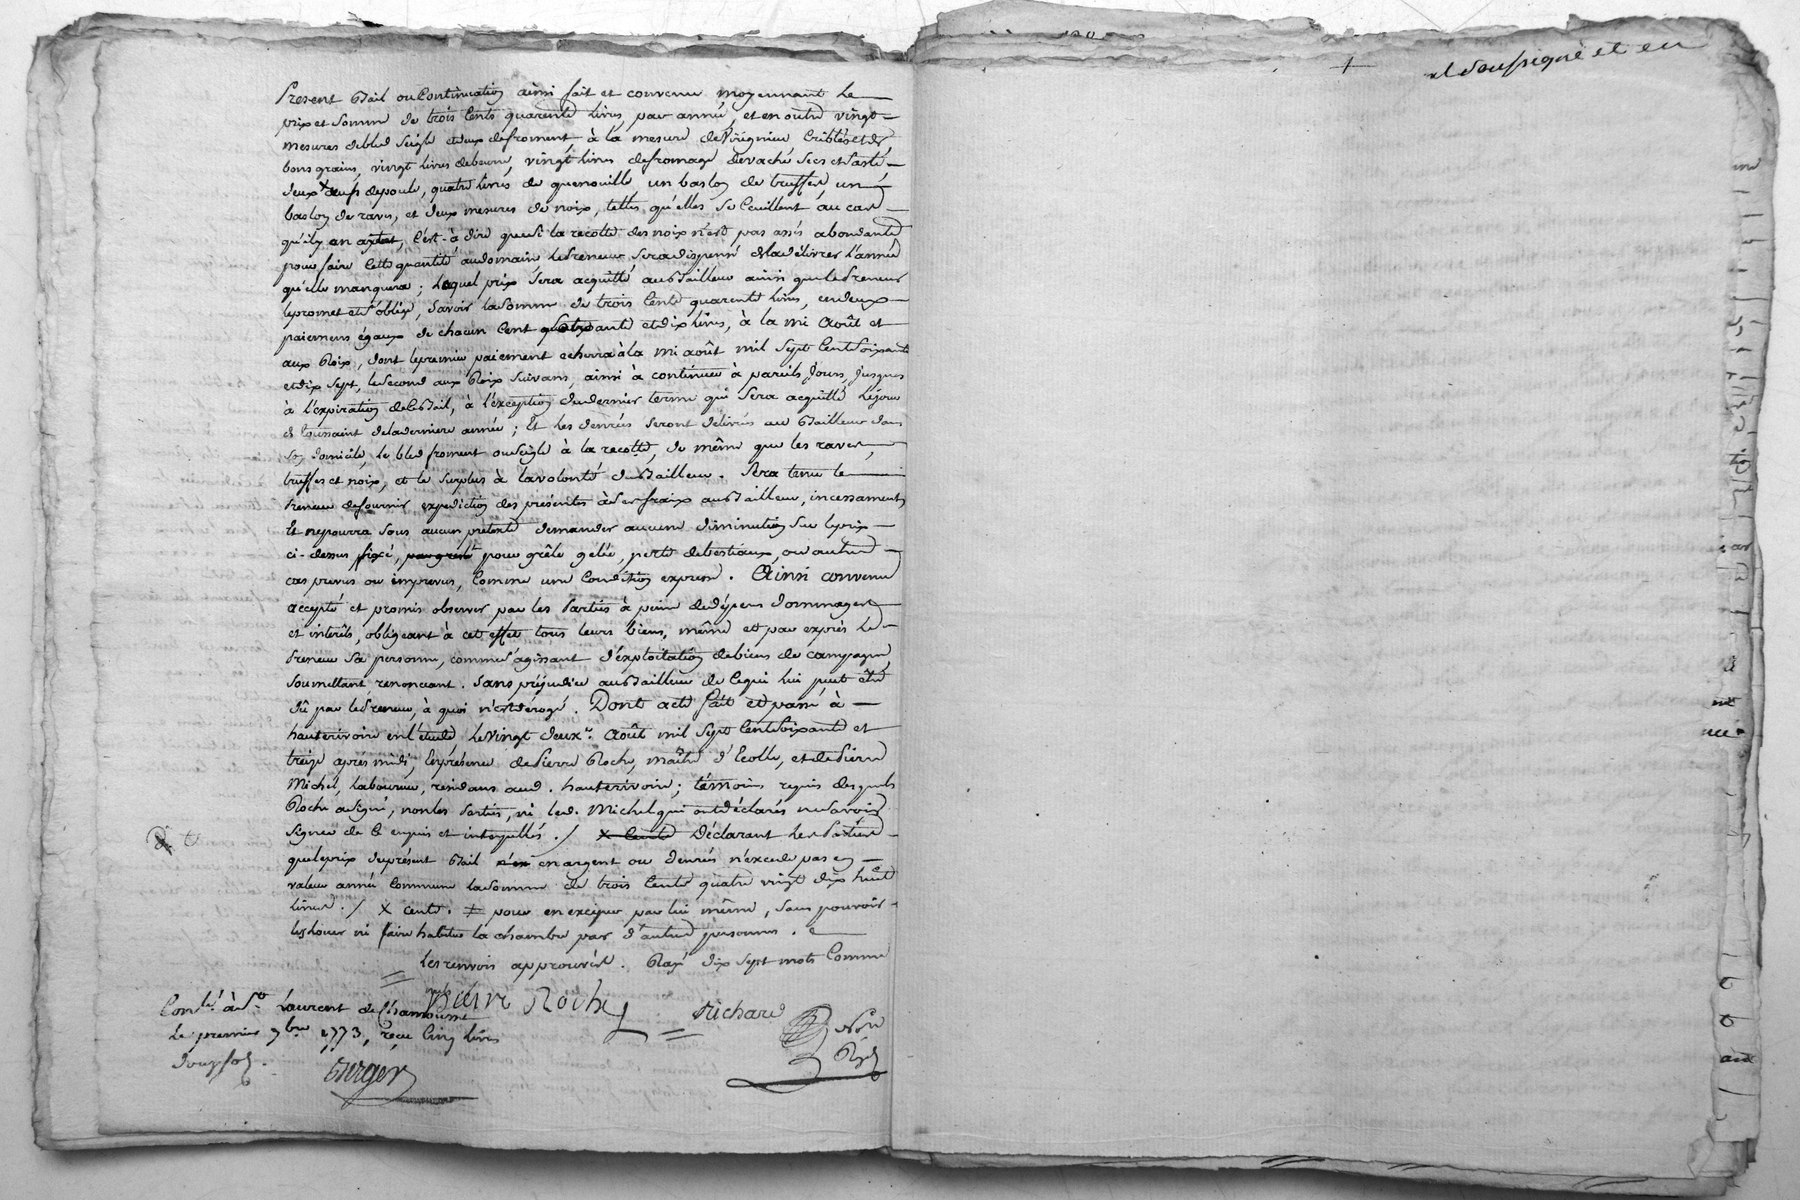 Present Bail ou Continuation ainsi fait et convenu moyennant le
prix et Somme de trois Cents quarente livres, par année, et en outre vingt
mesures de bled Seigle et deux de froment, à la mesure de criblés et de
bons grains, vingt livres de beurre, vingt livres de fromage de vache secs et
deux oeufs de poule, quatre livres de quenouille un de truffes, un
de raves, et deux mesures de noix, telles qu'elles se Cueillent au cas
qu'il y en c'est-à dire que si la recolte des noix n'est pas assés abondante
pour faire Cette quantité au domaine le Preneur sera dispensé de la délivrer l'année
qu'elle manquera ; Lequel prix sera acquitté au Bailleur ainsi que le Preneur
le promet et s'oblige, Savoir la Somme de trois Cents quarente livres, en deux
paiemens égaux de chacun Cent Soixante et dix livres, à la mi Août et
aux Rois, dont le premier paiement echerra à la mi août mil Sept Cent Soixante
et dix sept, le second aux Rois Suivans, ainsi à continuer à pareils Jours, Jusques
à l'expiration de ce Bail, à l'exception du dernier terme qui Sera acquitté le jour
de toussaint de la derniere année ; Et les denrées seront délivrés au Bailleur dans
son domicile, le bled froment ou seigle à la recolte, de même que les raves,
truffes et noix, et le surplus à la volonté du Bailleur. Sera tenu le
Preneur de fournir expedition des présentes à Ses fraix au Bailleur, incessament,
Et ne pourra sous aucun prétexte demander aucune diminution sur le prix
ci-dessus fixé, pour grêle gelée, perte de bestiaux, ou autres
cas prevus ou imprevus, Comme une Condition expresse. Ainsi convenu
accepté et promis observer par les Parties à peine de dépens dommages
et intérêts, obligeant à cet effet tous leurs biens, même et par exprès le
Preneur Sa personne, comme s'agissant d'exploitation de biens de campagne
soumettant, renonceant. Sans préjudice au Bailleur de Ce qui lui peut être
dû par le Preneur, à quoi n'est dérogé. Dont acte fait et passé à
hauterivoire en l'étude le vingt deux.e Août mil Sept Cent Soixante et
treize après midi, En présence de Pierre Roche, maître d'Ecolle, et de Pierre
Michel, Laboureur, résidans aud. hauterivoire ; témoins requis desquels
Roche a signé, non les Parties, ni led. Michel qui ont déclarés ne savoir
Signer de Ce enquis et interpellés. / Déclarant les Parties
que le prix du présent Bail en argent ou denrées n'excede pas en
valeur année Commune la Somme de trois Cents quatre vingt dix huit
livres. / X Cents. ≠ pour en exciper par lui même, Sans pouvoir
ni faire habiter la chambre par d'autres personnes.
Les renvois approuvés. Rayé dix Sept mots Comme
Pierre Roche
Richard
Con.lé à S.t Laurent de Chamousset
Le premier 7bre 1773, reçu Cinq livres
Berger
Nore
Royal